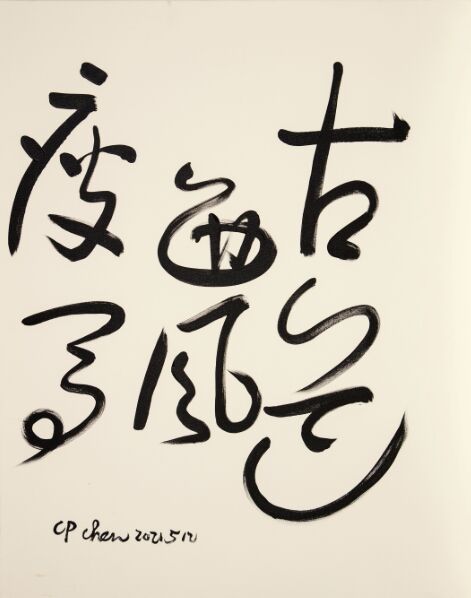 古道
西風
瘦馬
CP Chen 2021.5.12